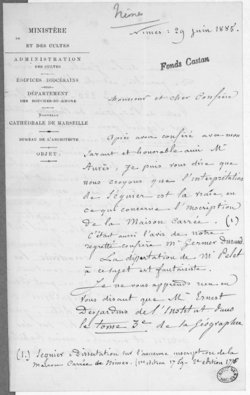 Nîmes
Nîmes: 29 juin 1888.
MINISTÈRE
ET DES CULTES
ADMINISTRATION
DES CULTES
ÉDIFICES DIOCÉSAINS
DÉPARTEMENT
DES BOUCHES-DU-RHÔNE
NOUVELLE
CATHÉDRALE DE MARSEILLE
BUREAU DE L'ARCHITECTE
OBJET:
Fonds Caston
Monsieur et cher Confrère
Après avoir conféré avec mon
savant et honorable ami Mr
Aurès, je puis vous dire que
nous croyons que l'interprétation
de Séguier est la vraie en
ce qui concerne l'inscription
de la Maison Carrée. (1)
C'était aussi l'avis de notre
regretté confrère Mr Germer Durand
La dissertation de Mr Pelet
à ce sujet est fautive.
Je ne vous apprends rien en
vous disant que Mr Ernest
Desjardins de l'Institut dans
le tome 3e de sa Géographie
(1.) Séguier, Dissertation sur l'ancienne inscription de la
Maison Carrée de Nîmes. 1re édition 1759. 2e édition 1776